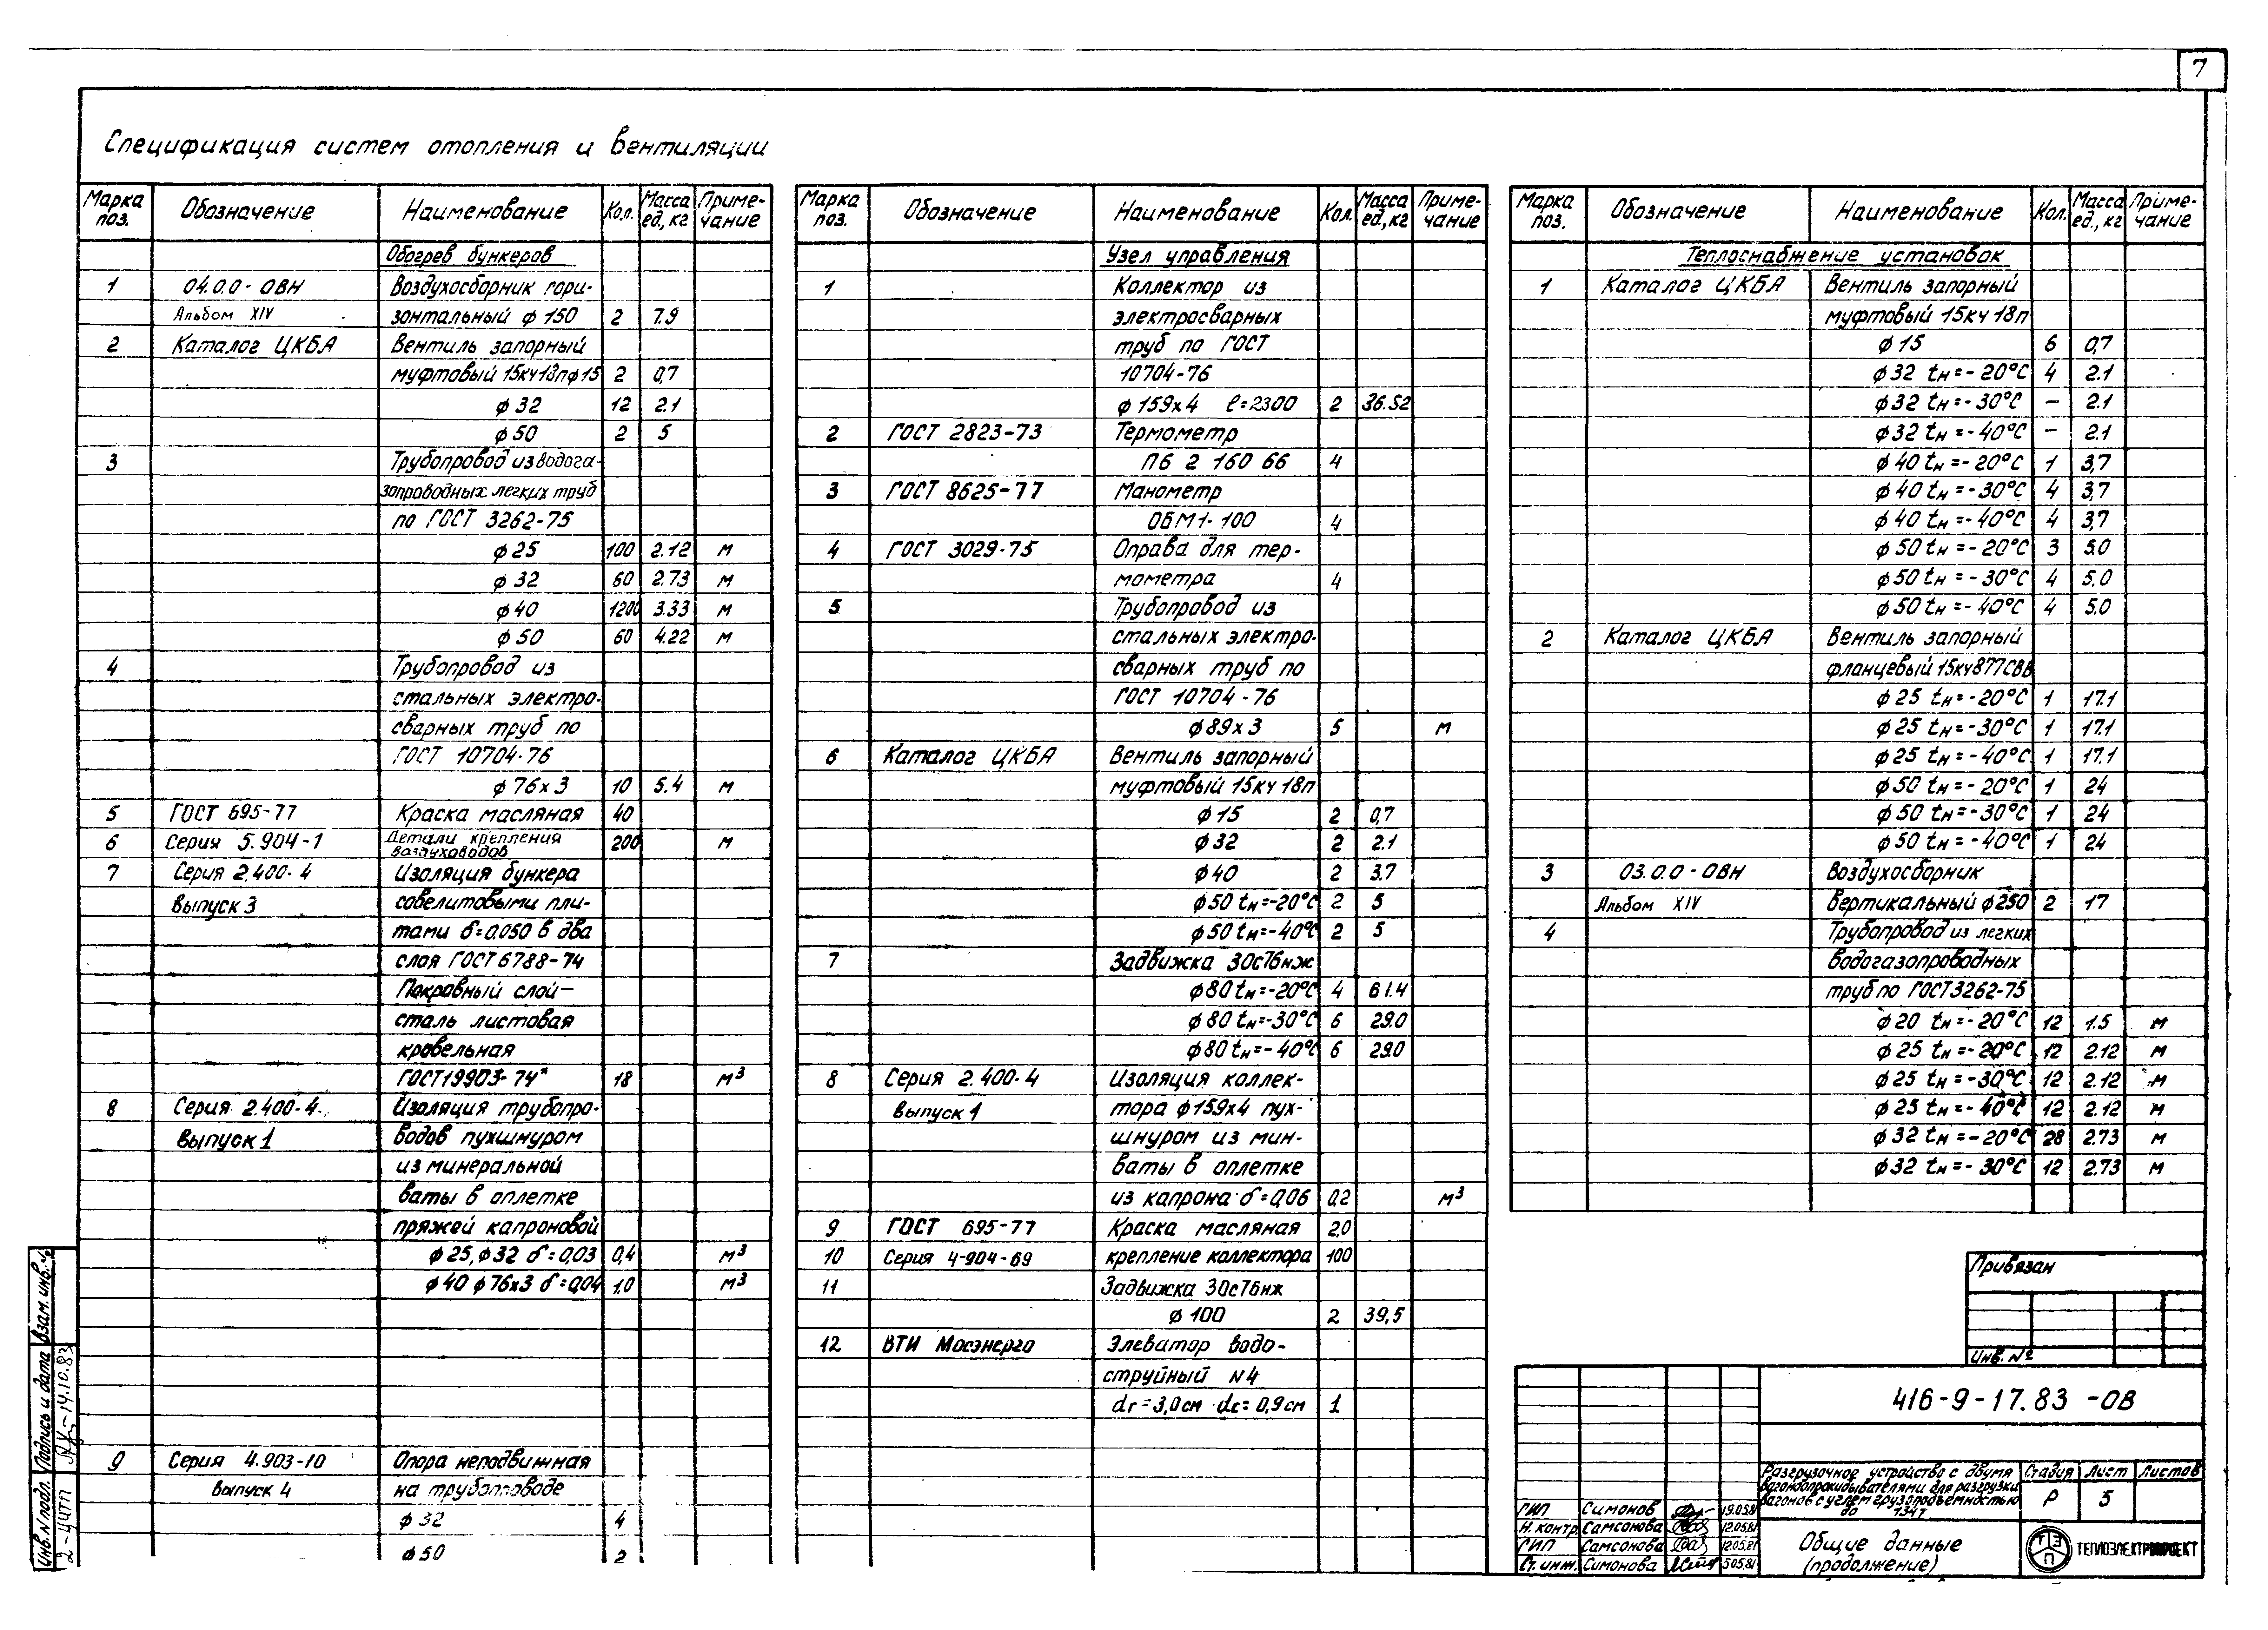 7
Спецификация систем отопления и вентиляции
Марка поз. Обозначение Наименование Кол. Масса ед., кг Примечание
Обогрев бункеров
1 04.0.0-ОВН Воздухосборник гори-
Альбом XIV зонтальный ф 150 2 7.9
2 Каталог ЦКБА Вентиль запорный
муфтовый 15кч18п ф15 2 0,7
ф 32 12 2.1
ф 50 2 5
3 Трубопровод из водога-
зопроводных легких труб
по ГОСТ 3262-75
ф 25 100 2.12 м
ф 32 60 2.73 м
ф 40 1200 3.33 м
ф 50 60 4.22 м
4 Трубопровод из
стальных электро-
сварных труб по
ГОСТ 10704-76
ф 76х3 10 5.4 м
5 ГОСТ 695-77 Краска масляная 40
6 Серия 5.904-1 Детали крепления воздуховодов 200 м
7 Серия 2.400-4 Изоляция бункера
выпуск 3 совелитовыми пли-
тами δ=0,050 в два
слоя ГОСТ 6788-74
Покровный слой —
сталь листовая
кровельная
ГОСТ19903-74* 18 м³
8 Серия 2.400-4 Изоляция трубопро-
выпуск 1 водов пухшнуром
из минеральной
ваты в оплетке
пряжей капроновой
ф 25, ф 32 δ=0,03 0,4 м³
ф 40 ф 76х3 δ=0,04 1,0 м³
9 Серия 4.903-10 Опора неподвижная
выпуск 4 на трубопроводе
ф 32 4
ф 50 2
Марка поз. Обозначение Наименование Кол. Масса ед., кг Примечание
Узел управления
1 Коллектор из
электросварных
труб по ГОСТ
10704-76
ф 159х4 ℓ=2300 2 36.52
2 ГОСТ 2823-73 Термометр
П6 2 160 66 4
3 ГОСТ 8625-77 Манометр
ОБМ1-100 4
4 ГОСТ 3029-75 Оправа для тер-
мометра 4
5 Трубопровод из
стальных электро-
сварных труб по
ГОСТ 10704-76
ф 89х3 5 м
6 Каталог ЦКБА Вентиль запорный
муфтовый 15кч 18п
ф 15 2 0,7
ф 32 2 2.1
ф 40 2 3.7
ф 50 tн=-20°С 2 5
ф 50 tн=-40°С 2 5
7 Задвижка 30с76нж
ф 80 tн=-20°С 4 61.4
ф 80 tн=-30°С 6 29.0
ф 80 tн=-40°С 6 29.0
8 Серия 2.400-4 Изоляция коллек-
выпуск 1 тора ф 159х4 пух-
шнуром из мин-
ваты в оплетке
из капрона δ=0,06 0.2 м³
9 ГОСТ 695-77 Краска масляная 2,0
10 Серия 4-904-69 крепление коллектора 100
11 Задвижка 30с76нж
ф 100 2 39,5
12 ВТИ Мосэнерго Элеватор водо-
струйный N4
dг=3,0см dс=0,9см 1
Марка поз. Обозначение Наименование Кол. Масса ед., кг Примечание
Теплоснабжение установок
1 Каталог ЦКБА Вентиль запорный
муфтовый 15кч 18п
ф 15 6 0,7
ф 32 tн=-20°С 4 2.1
ф 32 tн=-30°С — 2.1
ф 32 tн=-40°С — 2.1
ф 40 tн=-20°С 1 3,7
ф 40 tн=-30°С 4 3,7
ф 40 tн=-40°С 4 3,7
ф 50 tн=-20°С 3 5.0
ф 50 tн=-30°С 4 5.0
ф 50 tн=-40°С 4 5.0
2 Каталог ЦКБА Вентиль запорный
фланцевый 15кч877СВВ
ф 25 tн=-20°С 1 17.1
ф 25 tн=-30°С 1 17.1
ф 25 tн=-40°С 1 17.1
ф 50 tн=-20°С 1 24
ф 50 tн=-30°С 1 24
ф 50 tн=-40°С 1 24
3 03.0.0-ОВН Воздухосборник
Альбом XIV вертикальный ф 250 2 17
4 Трубопровод из легких
водогазопроводных
труб по ГОСТ3262-75
ф 20 tн=-20°С 12 1.5 м
ф 25 tн=-20°С 12 2.12 м
ф 25 tн=-30°С 12 2.12 м
ф 25 tн=-40°С 12 2.12 м
ф 32 tн=-20°С 28 2.73 м
ф 32 tн=-30°С 12 2.73 м
Привязан
Инв. №
416-9-17.83 -ОВ
Разгрузочное устройство с двумя
вагоноопрокидывателями для разгрузки
вагонов с углем грузоподъемностью
до 134т
Стадия Лист Листов
Р 5
ГИП Симонов 19.05.81
Н. контр. Самсонова 12.05.81
ГИП Самсонова 12.05.81
Ст. инж. Симонова 5.05.81
Общие данные
(продолжение)
ТЭП
ТЕПЛОЭЛЕКТРОПРОЕКТ
Взам. инв. №
Подпись и дата 14.10.83
Инв. N подл.